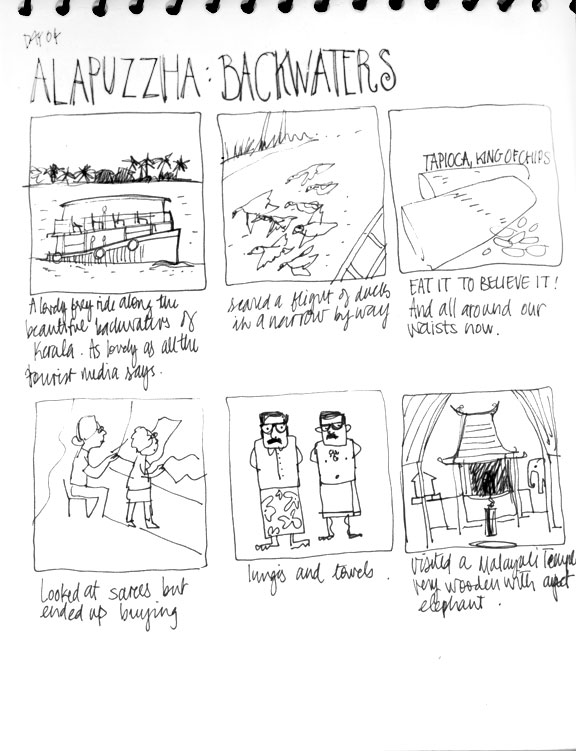 DAY 04
ALAPUZZHA: BACKWATERS
A lovely ferry ride along the
beautiful backwaters of
Kerala. As lovely as all the
tourist media says.
scared a flight of ducks
in a narrow by way
TAPIOCA, KING OF CHIPS
EAT IT TO BELIEVE IT!
And all around our
waists now.
Looked at sarees but
ended up buying
lungis and towels.
visited a Malayali temple
very wooden with a pet
elephant.